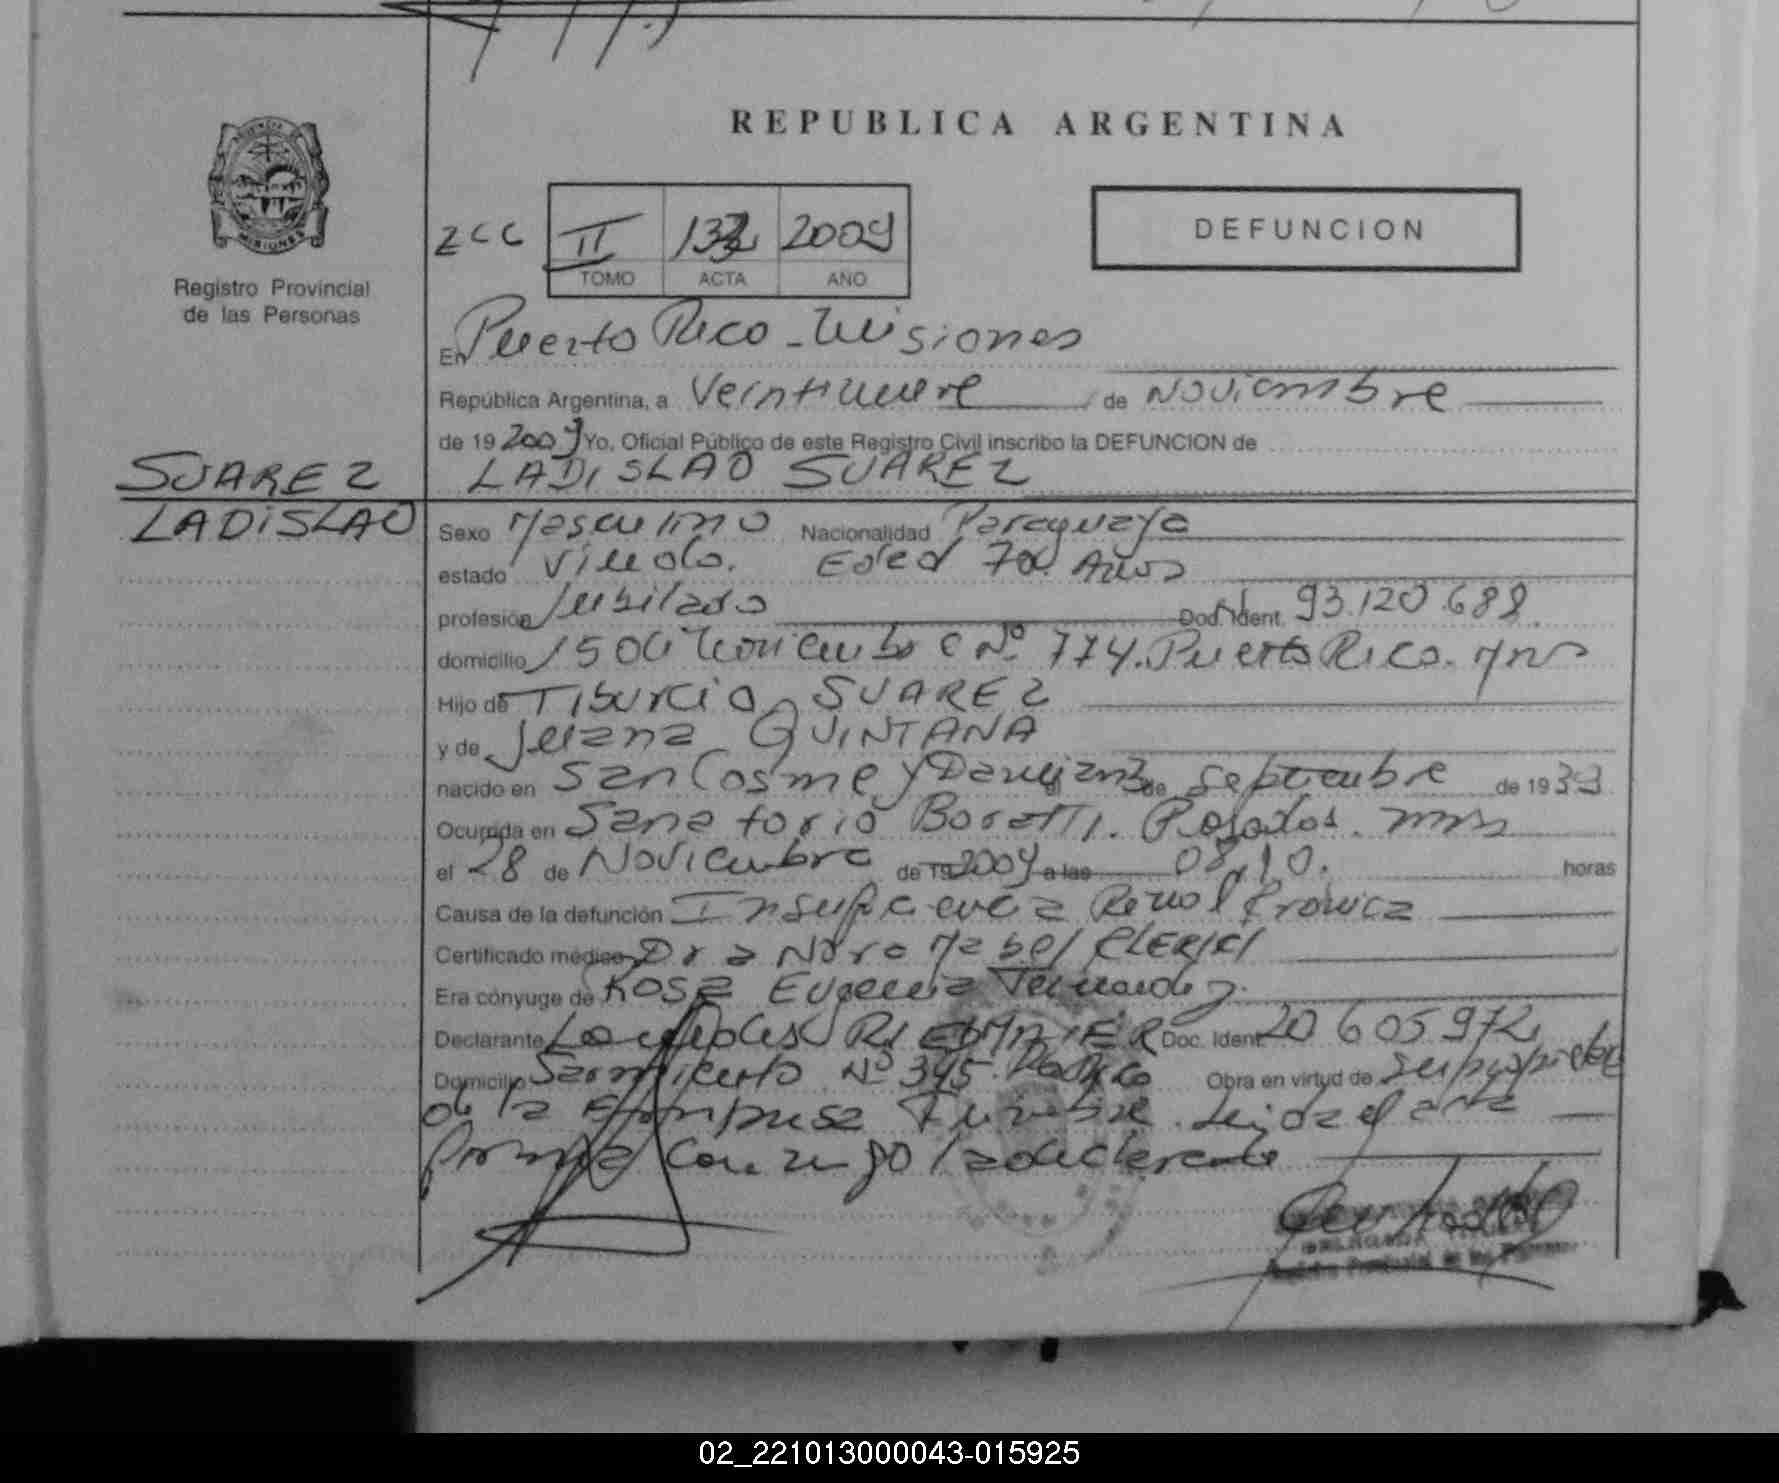 REPUBLICA ARGENTINA
DEFUNCION
Registro Provincial
de las Personas
II 2009
TOMO ACTA AÑO
En Puerto Rico - Misiones
República Argentina, a Veintinueve de Noviembre
de 19 2009 Yo, Oficial Público de este Registro Civil inscribo la DEFUNCION de
SUAREZ
LADISLAO SUAREZ
LADISLAO
Sexo Masculino Nacionalidad Paraguaya
estado Viudo. Edad 70 Años
profesión Jubilado Doc. Ident. 93.120.688.
domicilio 15 de Noviembre Nº 774. Puerto Rico. Mns
Hijo de Tiburcio SUAREZ
y de Juana QUINTANA
nacido en San Cosme y Damian el 3 de Septiembre de 1939
Ocurrida en Sanatorio Boratti. Posadas. Mns
el 28 de Noviembre de 19 2009 a las 08,10. horas
Causa de la defunción Insuficiencia Renal Cronica
Certificado médico Dra Nora Mabel CLERICI
Era cónyuge de Rosa Eugenia Fernandez.
Declarante RIEDMAIER Doc. Ident. 20 605 972
Domicilio Sarmiento Nº 395 Pto Rico Obra en virtud de ser propietario
de la Empresa Funebre. Leida el acta
firma conmigo la declarante
02_221013000043-015925